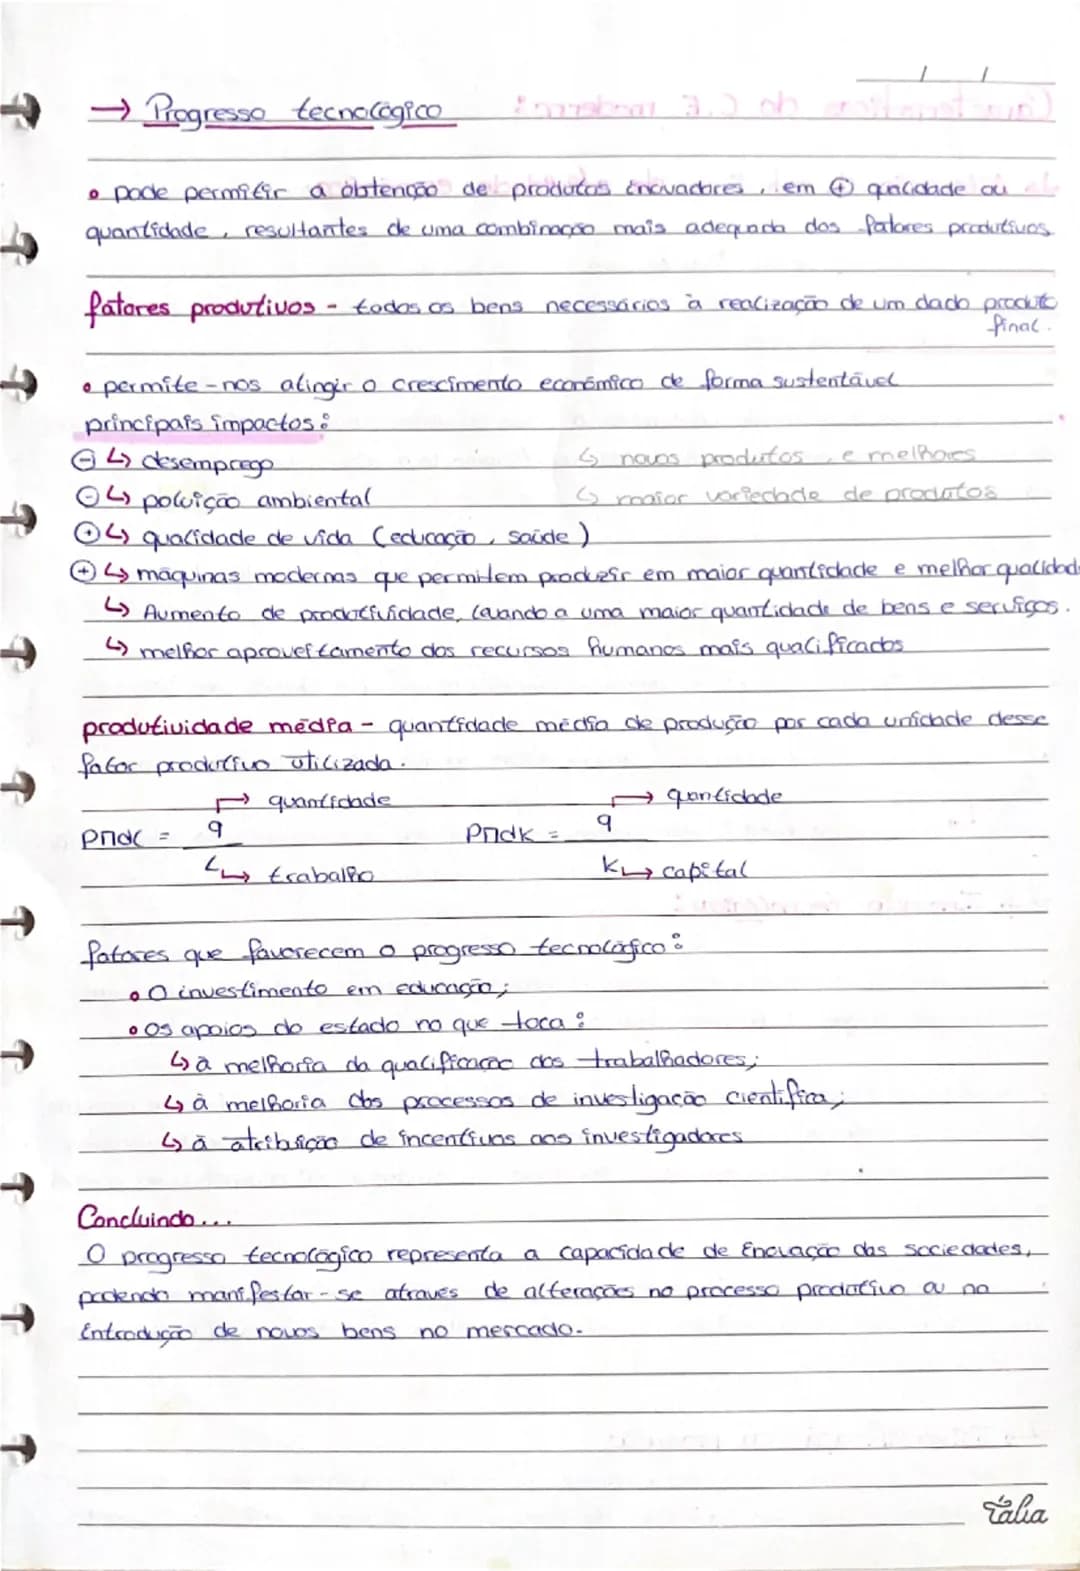 / /
→ Progresso tecnológico
• pode permitir a obtenção de produtos inovadores, em ⊕ qualidade ou
quantidade, resultantes de uma combinação mais adequada dos fatores produtivos
fatores produtivos - todos os bens necessários à realização de um dado produto
final.
• permite-nos atingir o crescimento económico de forma sustentável
principais impactos:
⊖ ↳ desemprego ↳ novos produtos e melhores
⊖ ↳ poluição ambiental ↳ maior variedade de produtos
⊕ ↳ qualidade de vida (educação, saúde)
⊕ ↳ máquinas modernas que permitem produzir em maior quantidade e melhor qualidad
↳ Aumento de produtividade, levando a uma maior quantidade de bens e serviços.
↳ melhor aproveitamento dos recursos humanos mais qualificados
produtividade média - quantidade média de produção por cada unidade desse
fator produtivo utilizada.
↱ quantidade ↱ quantidade
PMdL = q PMdK = q
L ↳ trabalho K ↳ capital
fatores que favorecem o progresso tecnológico:
• O investimento em educação;
• Os apoios do estado no que toca:
↳ à melhoria da qualificação dos trabalhadores;
↳ à melhoria dos processos de investigação científica;
↳ à atribuição de incentivos aos investigadores
Concluindo...
O progresso tecnológico representa a capacidade de inovação das sociedades,
podendo manifestar-se através de alterações no processo produtivo ou na
introdução de novos bens no mercado.
Tália